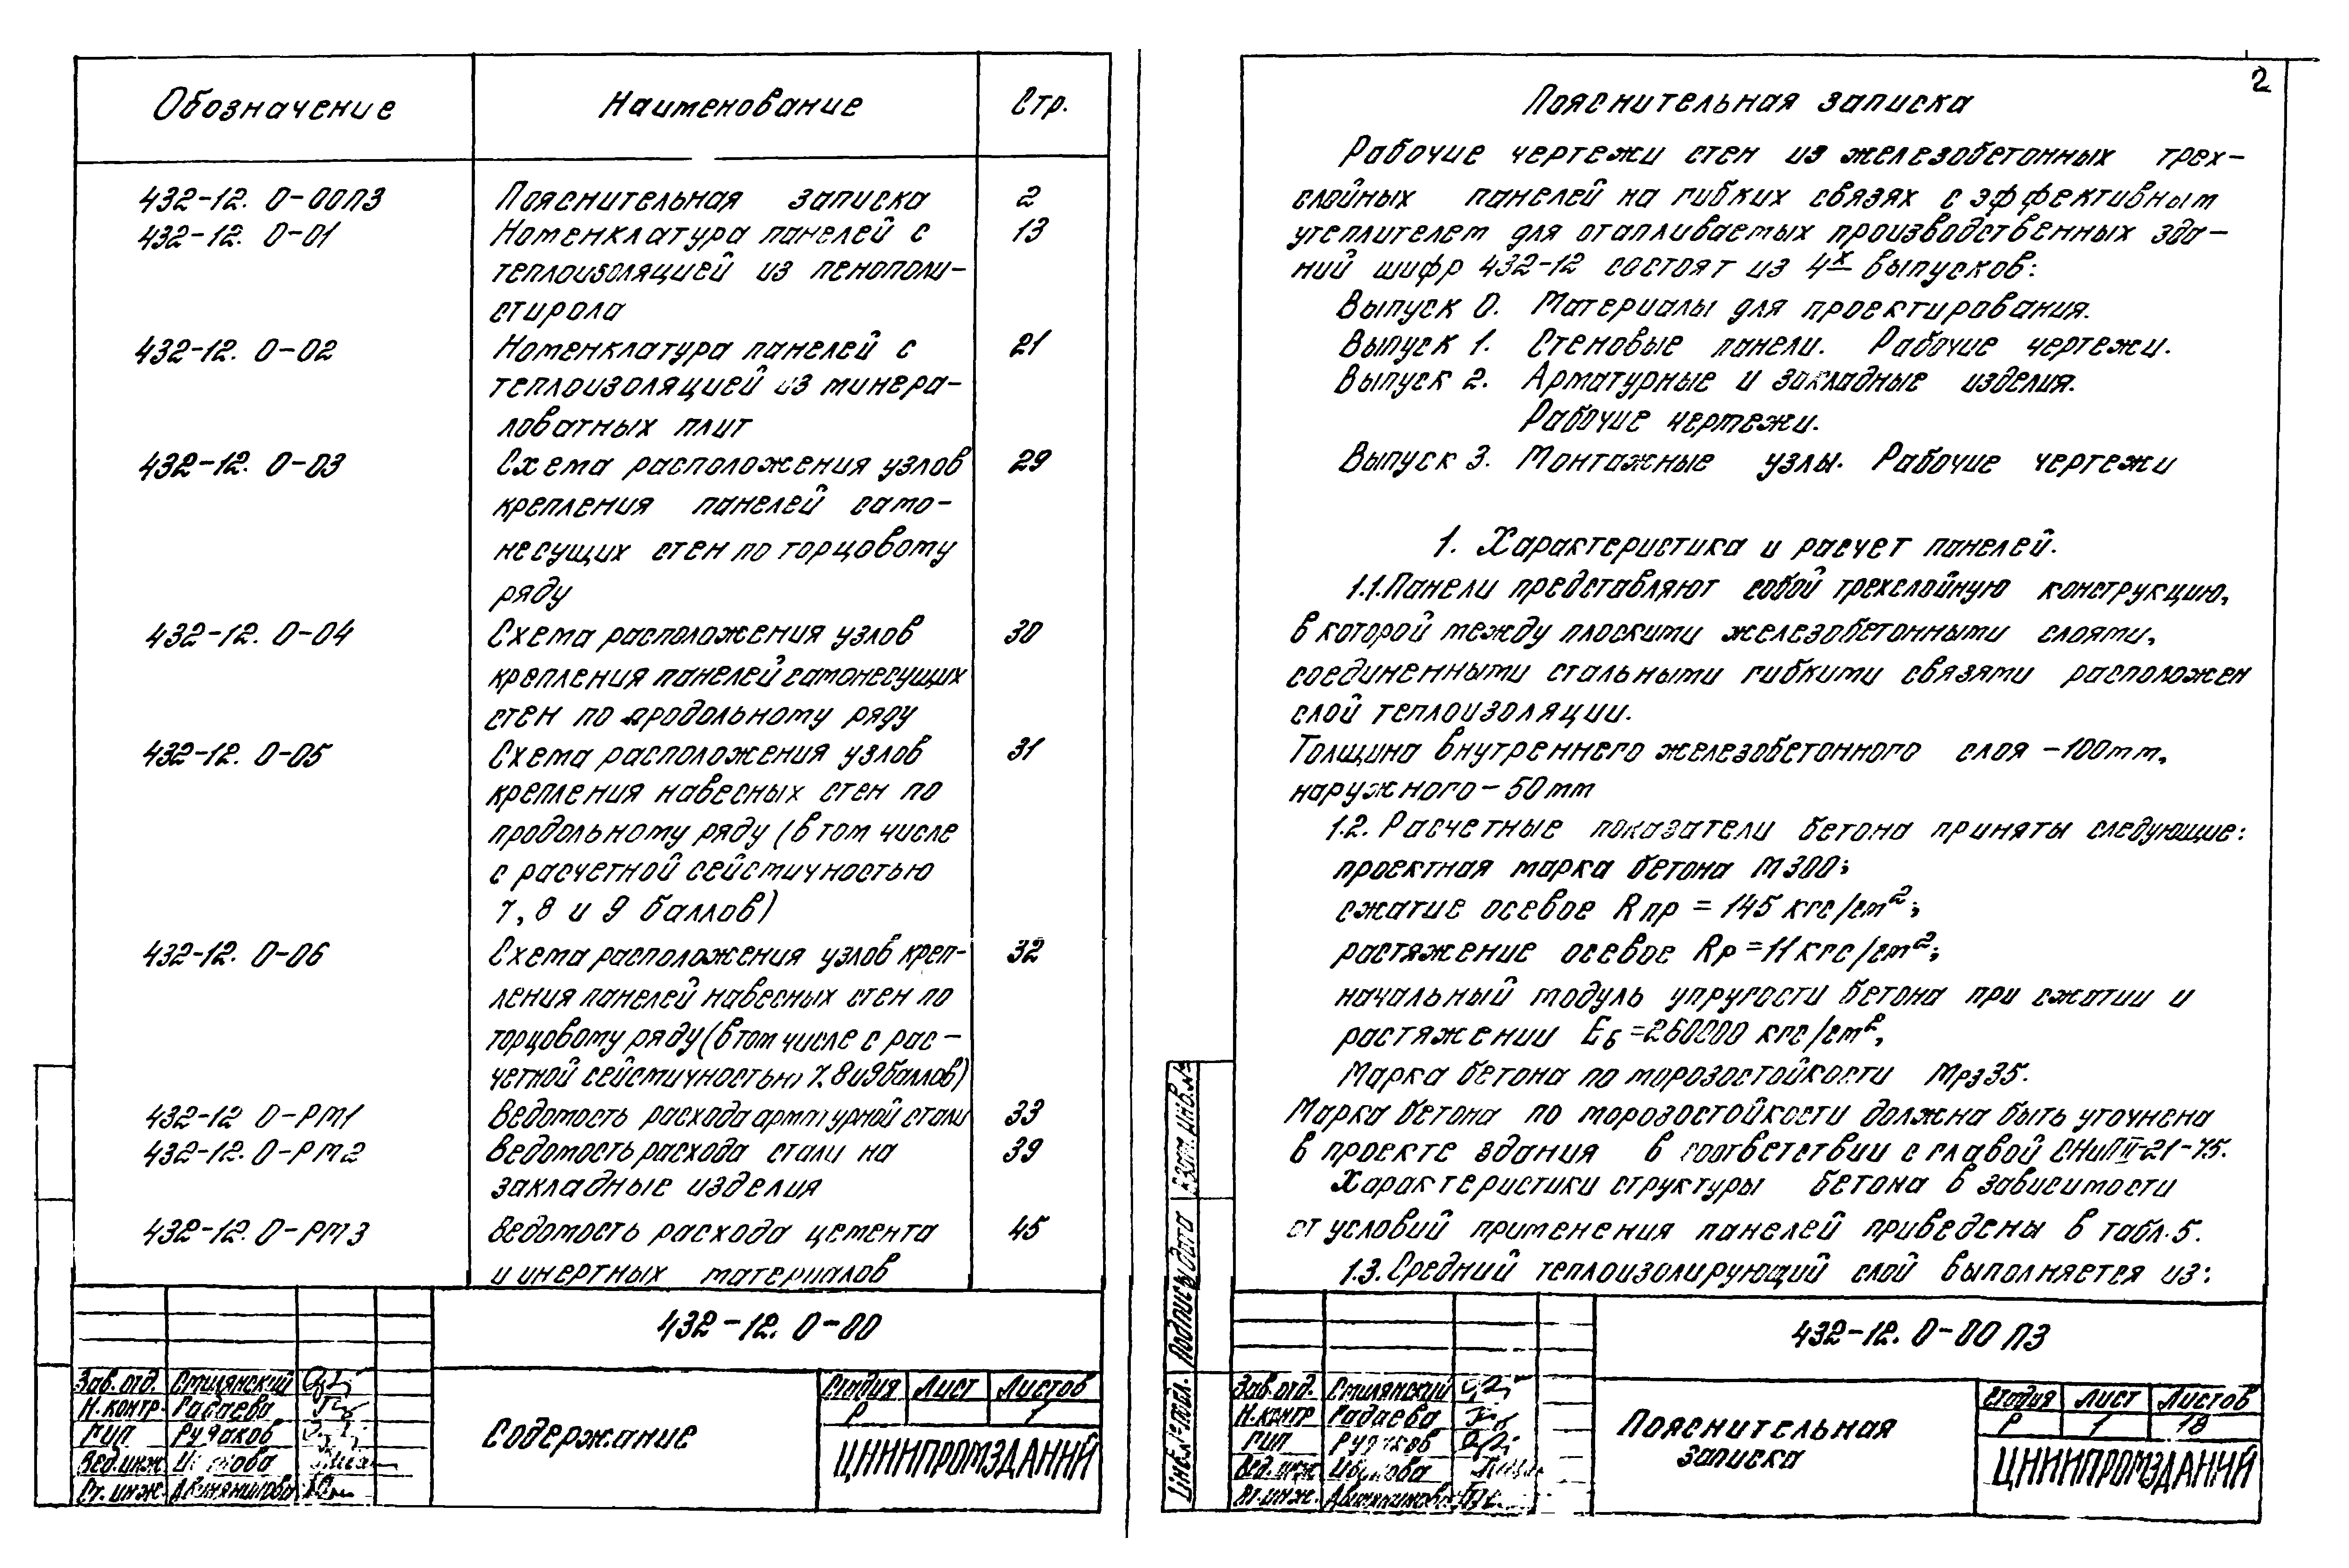 Обозначение Наименование Стр.
432-12. 0-00ПЗ Пояснительная записка 2
432-12. 0-01 Номенклатура панелей с 13
теплоизоляцией из пенополи-
стирола
432-12. 0-02 Номенклатура панелей с 21
теплоизоляцией из минера-
ловатных плит
432-12. 0-03 Схема расположения узлов 29
крепления панелей само-
несущих стен по торцовому
ряду
432-12. 0-04 Схема расположения узлов 30
крепления панелей самонесущих
стен по продольному ряду
432-12. 0-05 Схема расположения узлов 31
крепления навесных стен по
продольному ряду (в том числе
с расчетной сейсмичностью
7, 8 и 9 баллов)
432-12. 0-06 Схема расположения узлов креп- 32
ления панелей навесных стен по
торцовому ряду (в том числе с рас-
четной сейсмичностью 7, 8 и 9 баллов)
432-12 0-РМ1 Ведомость расхода арматурной стали 33
432-12. 0-РМ2 Ведомость расхода стали на 39
закладные изделия
432-12. 0-РМ3 Ведомость расхода цемента 45
и инертных материалов
432-12. 0-00
Зав. отд. Смилянский
Н. контр. Гадаева
ГИП Рудаков
Вед. инж
Ст. инж.
Содержание
Стадия Лист Листов
Р 1
ЦНИИПРОМЗДАНИЙ
2
Пояснительная записка
Рабочие чертежи стен из железобетонных трех-
слойных панелей на гибких связях с эффективным
утеплителем для отапливаемых производственных зда-
ний шифр 432-12 состоят из 4х выпусков:
Выпуск 0. Материалы для проектирования.
Выпуск 1. Стеновые панели. Рабочие чертежи.
Выпуск 2. Арматурные и закладные изделия.
Рабочие чертежи.
Выпуск 3. Монтажные узлы. Рабочие чертежи
1. Характеристика и расчет панелей.
1.1. Панели представляют собой трехслойную конструкцию,
в которой между плоскими железобетонными слоями,
соединенными стальными гибкими связями расположен
слой теплоизоляции.
Толщина внутреннего железобетонного слоя - 100мм,
наружного - 50мм
1.2. Расчетные показатели бетона приняты следующие:
проектная марка бетона М300;
сжатие осевое Rпр = 145 кгс/см²;
растяжение осевое Rр = 11 кгс/см²;
начальный модуль упругости бетона при сжатии и
растяжении Еб = 260000 кгс/см²,
Марка бетона по морозостойкости Мрз35.
Марка бетона по морозостойкости должна быть уточнена
в проекте здания в соответствии с главой СНиП II-21-75.
Характеристики структуры бетона в зависимости
от условий применения панелей приведены в табл. 5.
1.3. Средний теплоизолирующий слой выполняется из:
432-12. 0-00 ПЗ
Зав. отд. Смилянский
Н. контр Гадаева
ГИП Рудаков
Вед. инж.
Ст. инж.
Пояснительная
записка
Стадия Лист Листов
Р 1 18
ЦНИИПРОМЗДАНИЙ
Инв. № подл. Подпись и дата Взам. инв. №